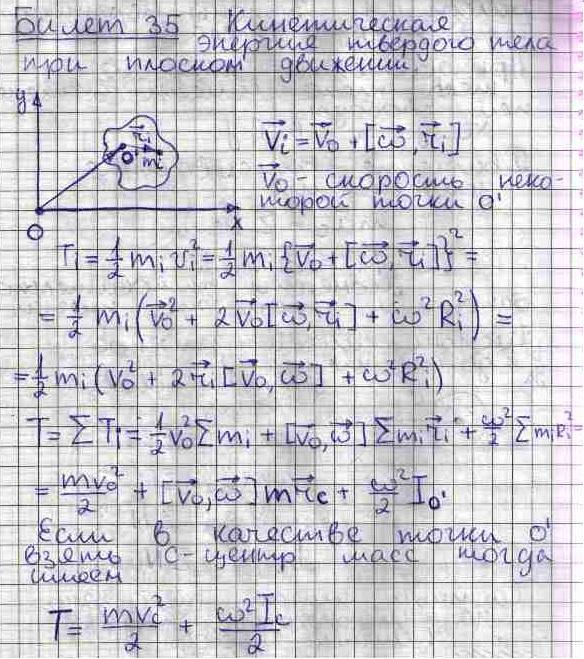 Билет 35 Кинетическая
энергия твердого тела
при плоском движении.
y
r⃗i
O' mi
O
x
V⃗i = V⃗0 + [ω⃗, r⃗i]
V⃗0 - скорость неко-
торой точки O'
Ti = 1/2 mi vi² = 1/2 mi {V⃗0 + [ω⃗, r⃗i]}² =
= 1/2 mi (V⃗0² + 2V⃗0[ω⃗, r⃗i] + ω²Ri²) =
= 1/2 mi (V0² + 2r⃗i[V⃗0, ω⃗] + ω²Ri²)
T = ΣTi = 1/2 V0² Σmi + [V⃗0, ω⃗] Σmi r⃗i + ω²/2 Σmi Ri² =
= mv0²/2 + [V⃗0, ω⃗] m r⃗c + ω²/2 IO'
Если в качестве точки O'
взять C-центр масс тогда
имеем
T = mVc²/2 + ω²Ic/2